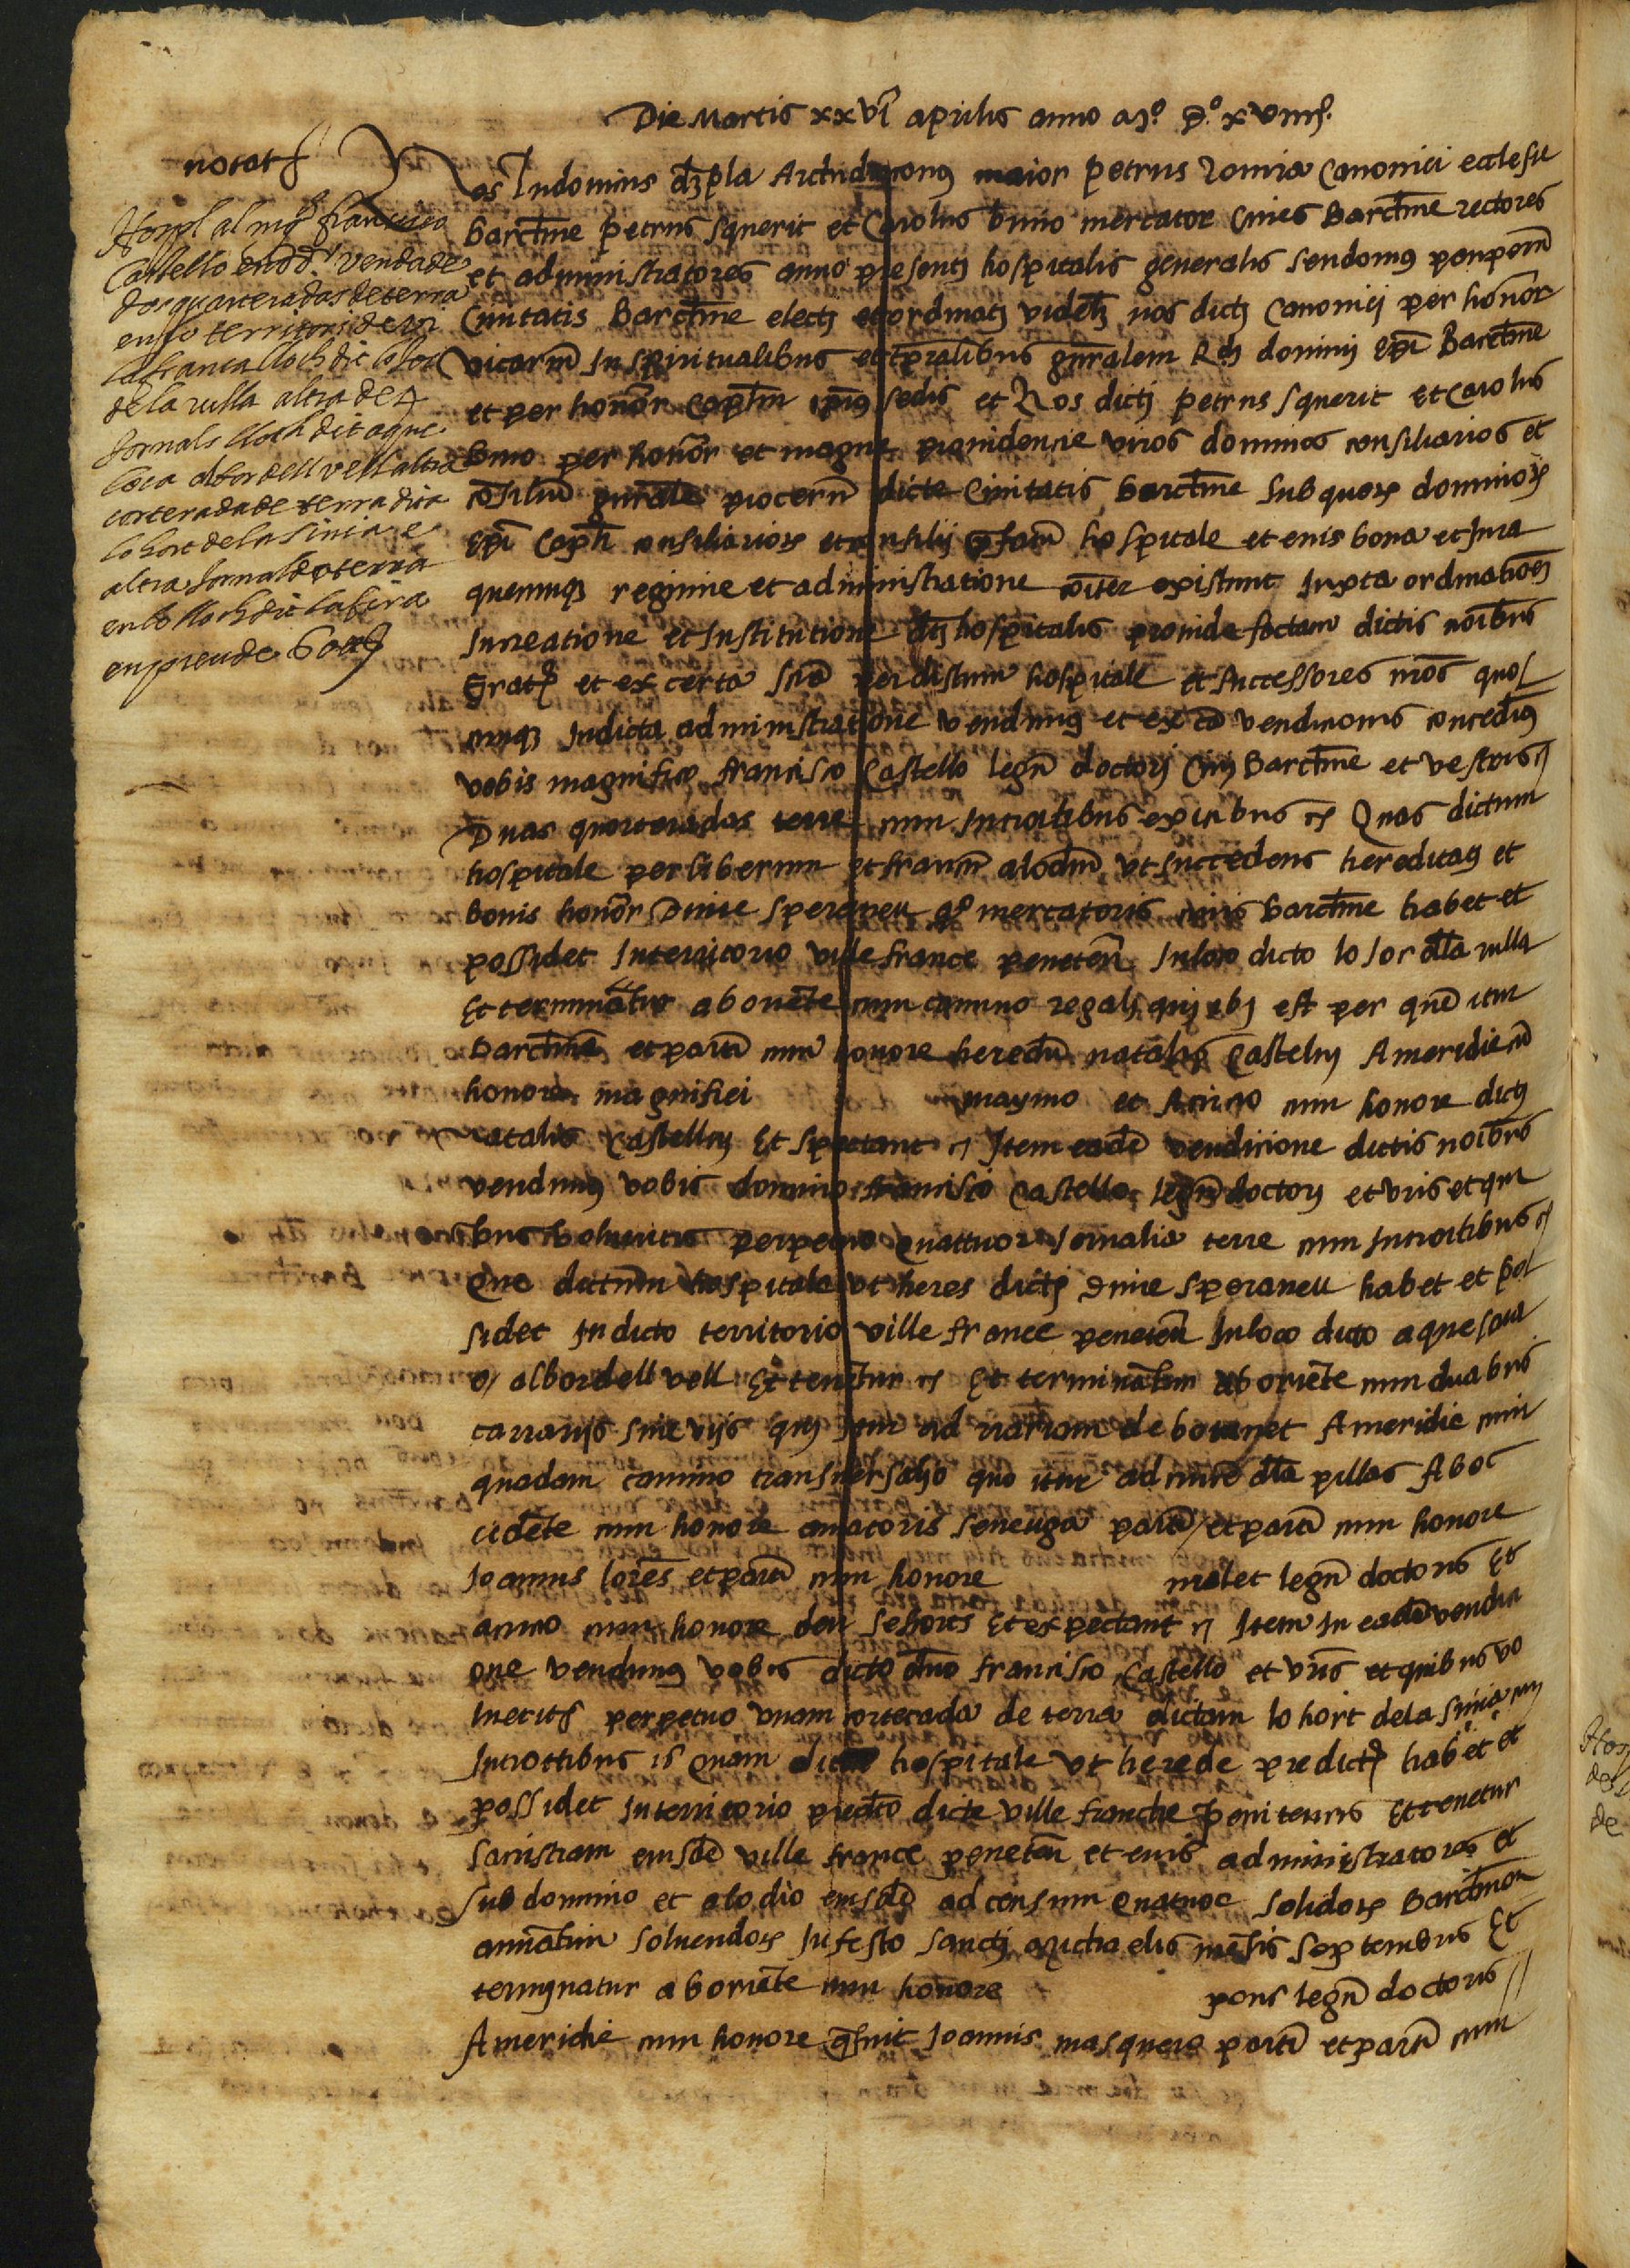 Die Martis xxvi aprilis anno Mº Dº xviiijº.
notat
Hospl al mgº Francisco
Castello en dd. venda de
dos quarterades de terra
en lo territori de vi
lafranca lloch dit lo sor
de la rulla altra de 4
Jornals lloch dit aque
loca albordell vell altra
corterada de terra dita
lo hort de la Sinia e
altra Jornal de terra
en lo lloch dit la fira
en preu de 60
Nos Indomins dez pla Archidiaconus maior Petrus Romia Canonici ecclesie
barchne Petrus Squerit et Carolus bruno mercator Cives Barchne rectores
et administratores anno presenti hospitalis generalis Sendomus pauperum
Civitatis Barchne electi et ordinati videlt nos dicti Canonici per honor
vicarium In spiritualibus et tpralibus gnralem Rdi domini Epi Barchne
et per honor Capltm ipius sedis et Nos dicti Petrus Squerit et Carolus
bruno per honor et magne providencie viros dominos consiliarios et
cosiliu gnrale procerum dicte Civitatis barchne sub quorum dominorum
Epi Capli consiliariorum et consilij hospitale et eius bona et Jura
quecumque regimine et administratione existunt Juxta ordinationem
In creatione et Institutione dicti hospitalis provide factam dictis noibus
Gratis et ex certa scia per dictum hospitale et successores nros quos
cumque In dicta administratione vendimus et ex ca vendicionis concedimus
vobis magnifico francisco Castello legum doctori Civi Barchne et vestris
Duas quarteradas terre cum Introitibus exitibus rc Quas dictum
hospitale per liberum et francum alodium ut succedens hereditati et
bonis honor Dnie Speraneu qº mercatoris civis barchne habet et
possidet In territorio ville france peneten In loco dicto lo sor dla rulla
Et terminatur ab oriente cum camino regali qui ibi est per que itur
Barchne et partim cum honore heredum natalis Castelry A meridie cu
honore magnifici maymo et A circio cum honore dicti
Natalis Castelry Et spectant rc Item eade vendicione dictis noibus
vendimus vobis domino francisco Castello legum doctori et vris et qui
bus volueritis perpetuo Quattuor Jornalia terre cum Introitibus rc
Que dictum hospitale ut heres dicti dnie Speraneu habet et pos
sidet In dicto territorio ville france peneten In loco dicto aquesoca
o/ albordell vell Et tenetur rc Et terminatur ab oriente cum duabus
carrarijs sive vijs quibus itur ad riariam de bouanet A meridie cum
quodam camino transversalio quo itur ad dla pillas Ab oc
cidente cum honore amatoris Seneuga partim et partim cum honore
Joannis lores et partim cum honore malet legum doctoris Et
a circio cum honore den Sessores Et expectant rc Item In eade vendici
one vendimus vobis dicto dno francisco Castello et vris et quibus vo
lueritis perpetuo unam corterada de terra dictam lo hort dela sinia cum
Introitibus rc Quam dictum hospitale ut herede predicti habet et
possidet In territorio predicto dicte ville franche penitensis Et tenetur
Sacristiam eiusde ville france peneten et eius administratores et
Sub dominio et alodio eiusde ad censum Quatuor solidorum Barchnon
annuatim solvendorum In festo Sancti Michaelis mensis Septembris Et
terminatur ab oriente cum honore pons legum doctoris
A meridie cum honore Joannis masquero partim et partim cum